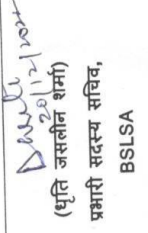 20/12/2024
(धृति जसलीन शर्मा)
प्रभारी सदस्य सचिव,
BSLSA